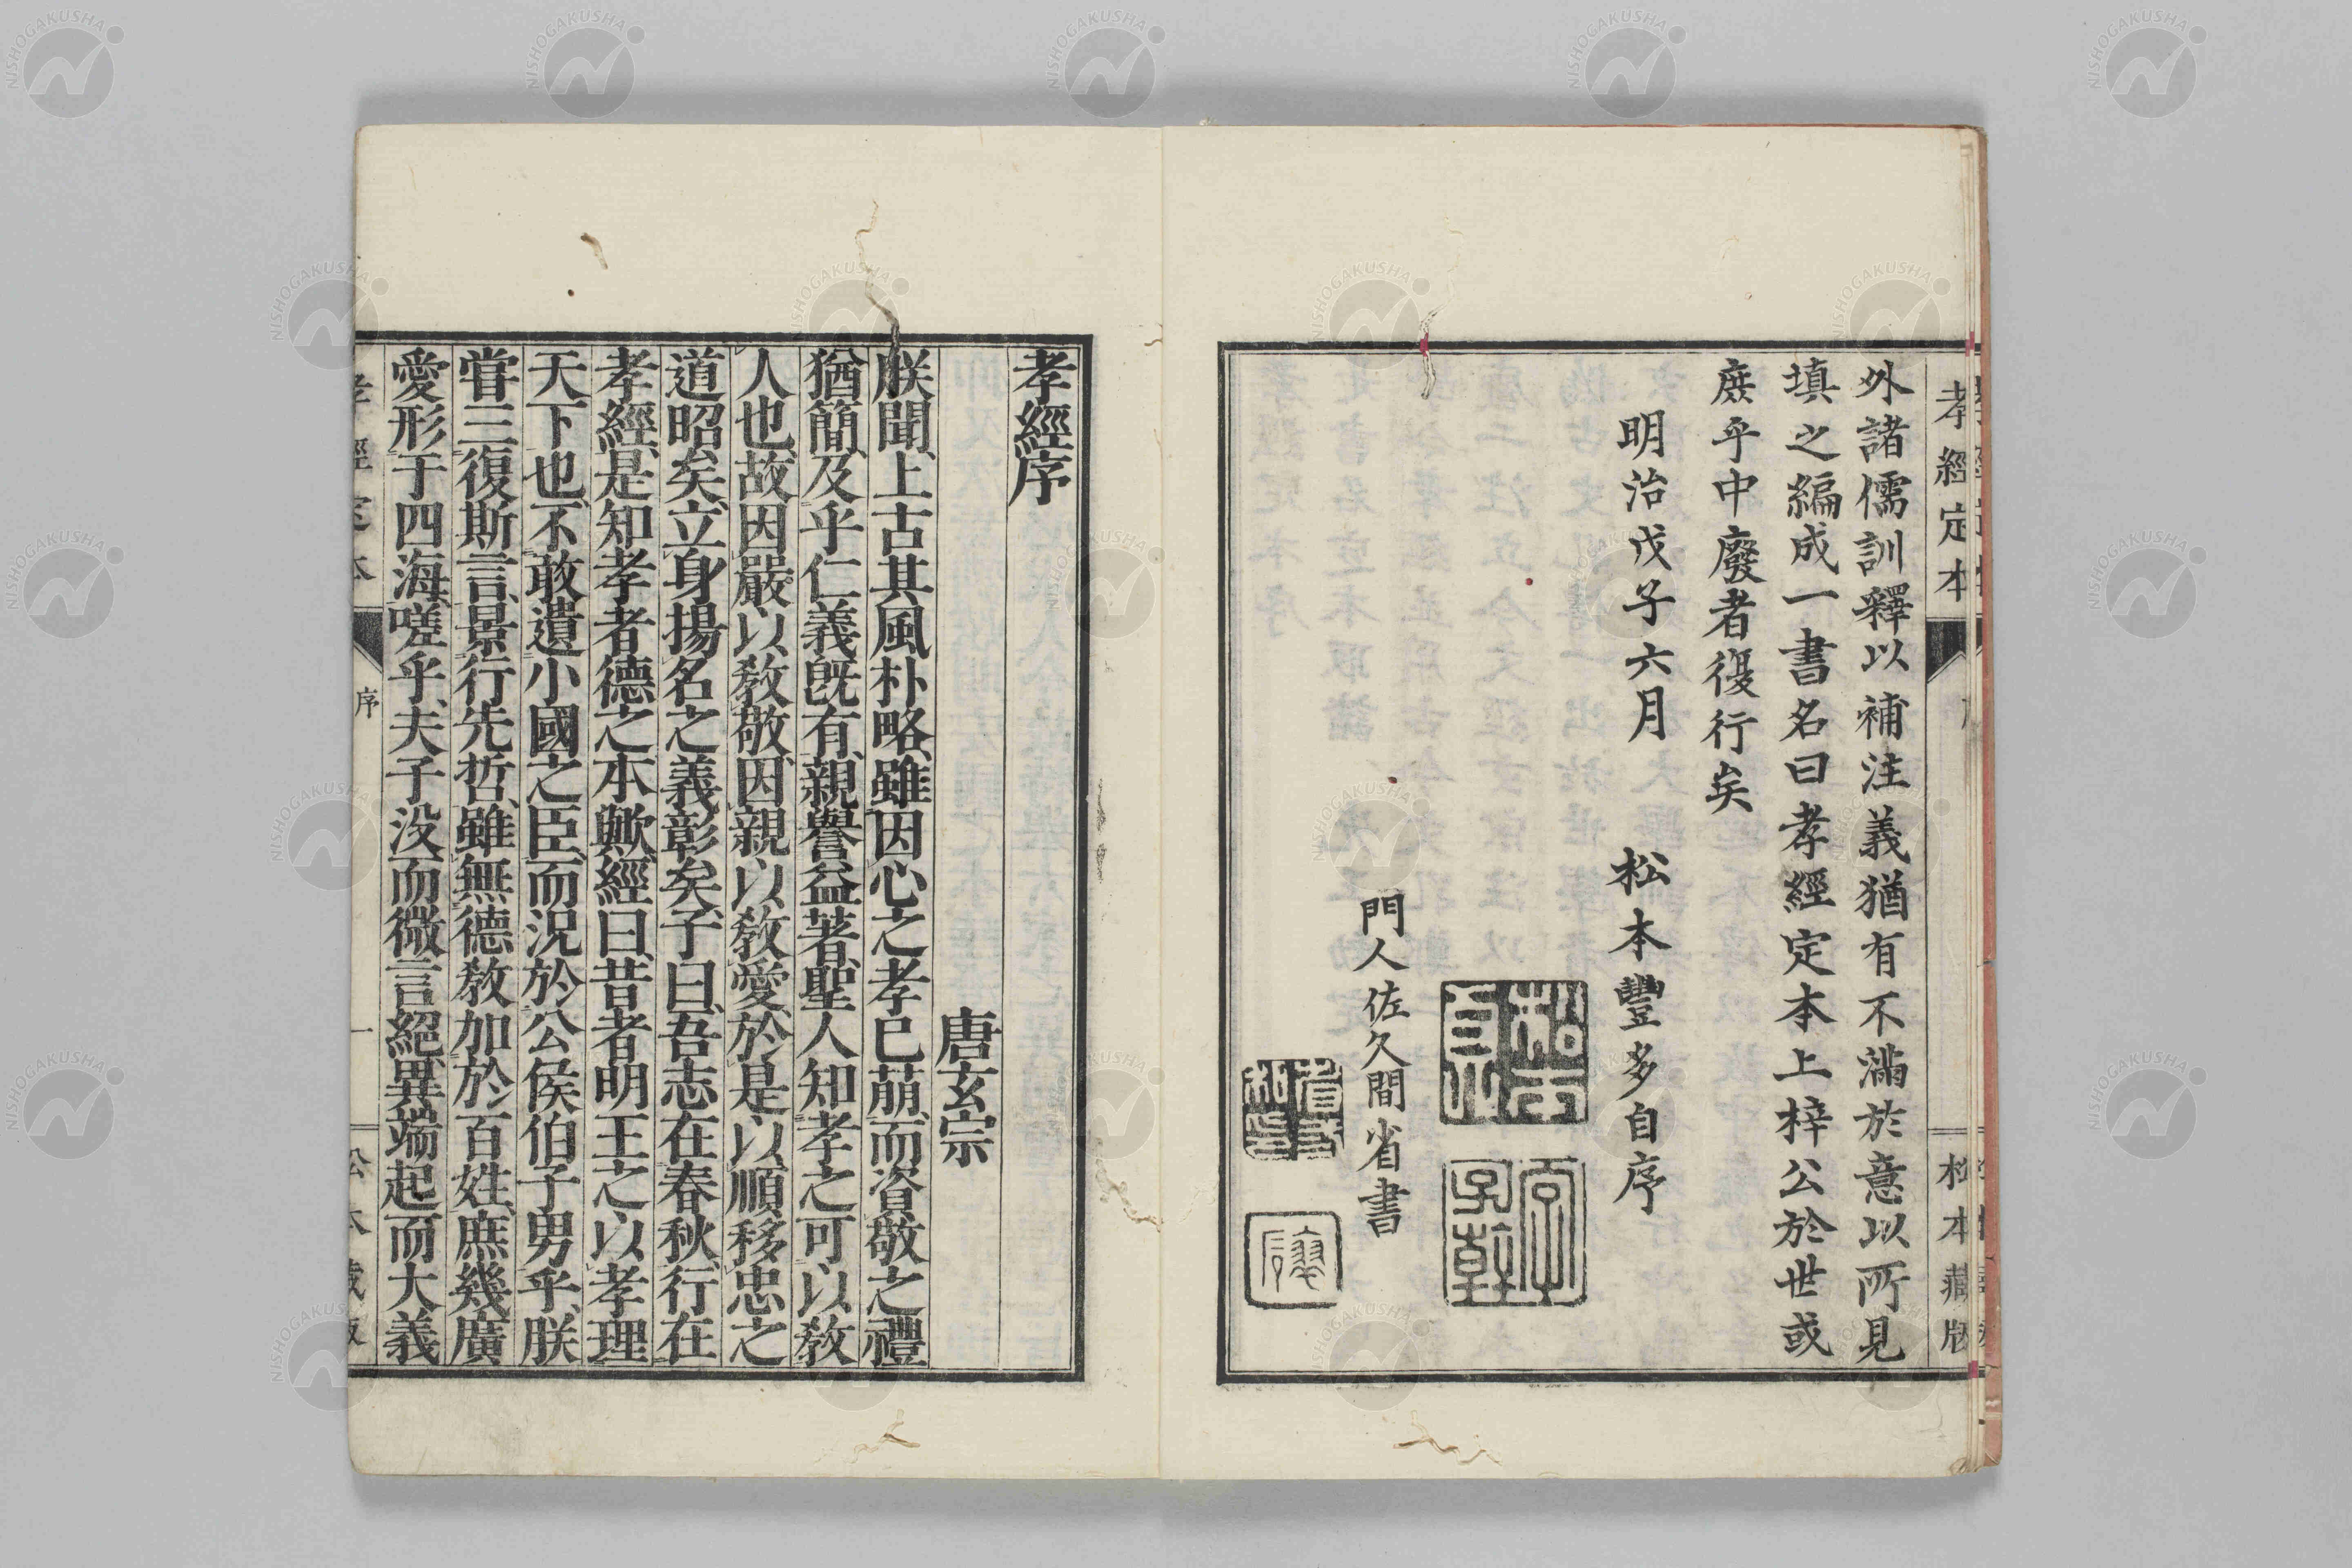 孝經定本
松本藏版
外諸儒訓釋以補注義猶有不滿於意以所見
填之編成一書名曰孝經定本上梓公於世或
庶乎中廢者復行矣
明治戊子六月
松本豐多自序
門人佐久間省書
孝經序
唐玄宗
朕聞、上古其風朴略、雖因心之孝已萌、而資敬之禮
猶簡、及乎仁義旣有、親譽益著、聖人知孝之可以敎
人也、故因嚴以敎敬、因親以敎愛、於是以順移忠之
道昭矣、立身揚名之義彰矣、子曰、吾志在春秋、行在
孝經、是知孝者德之本歟、經曰、昔者明王之以孝理
天下也、不敢遺小國之臣、而況於公侯伯子男乎、朕
嘗三復斯言、景行先哲、雖無德敎加於百姓、庶幾廣
愛形于四海、嗟乎、夫子沒而微言絕、異端起而大義
孝經定本
序
一
松本藏版
NISHOGAKUSHA